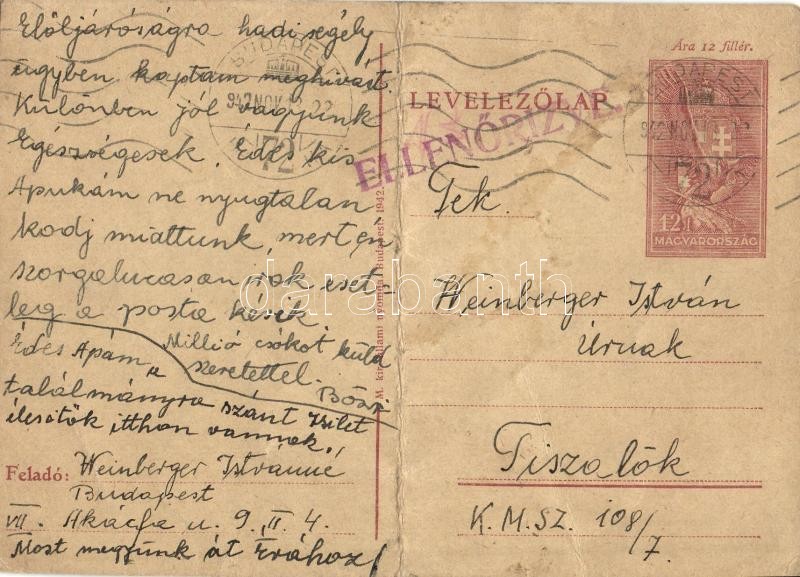 Elöljáróságra hadi segély
ügyben kaptam meghívást.
Különben jól vagyunk
Egészségesek. Édes kis
Apukám ne nyugtalan
kodj miattunk, mert én
szorgalmasan irok eset-
leg a posta késik.
Millió csókot küld
szeretettel.
Édes Apám a
találmányra szánt Zsilet
élesitök itthon vannak!
Feladó: Weinberger Istvánné
Budapest
VII. Akácfa u. 9. II. 4.
Most megyünk át Évához!
M. kir. állami nyomda, Budapest. 1942.
BUDAPEST
942 NOV
72
Ára 12 fillér.
LEVELEZŐLAP
ELLENŐRIZVE.
BUDAPEST
72
12 f
MAGYARORSZÁG
Tek.
Weinberger István
Úrnak
Tiszalök
K. M. SZ. 108/7.
darabanth